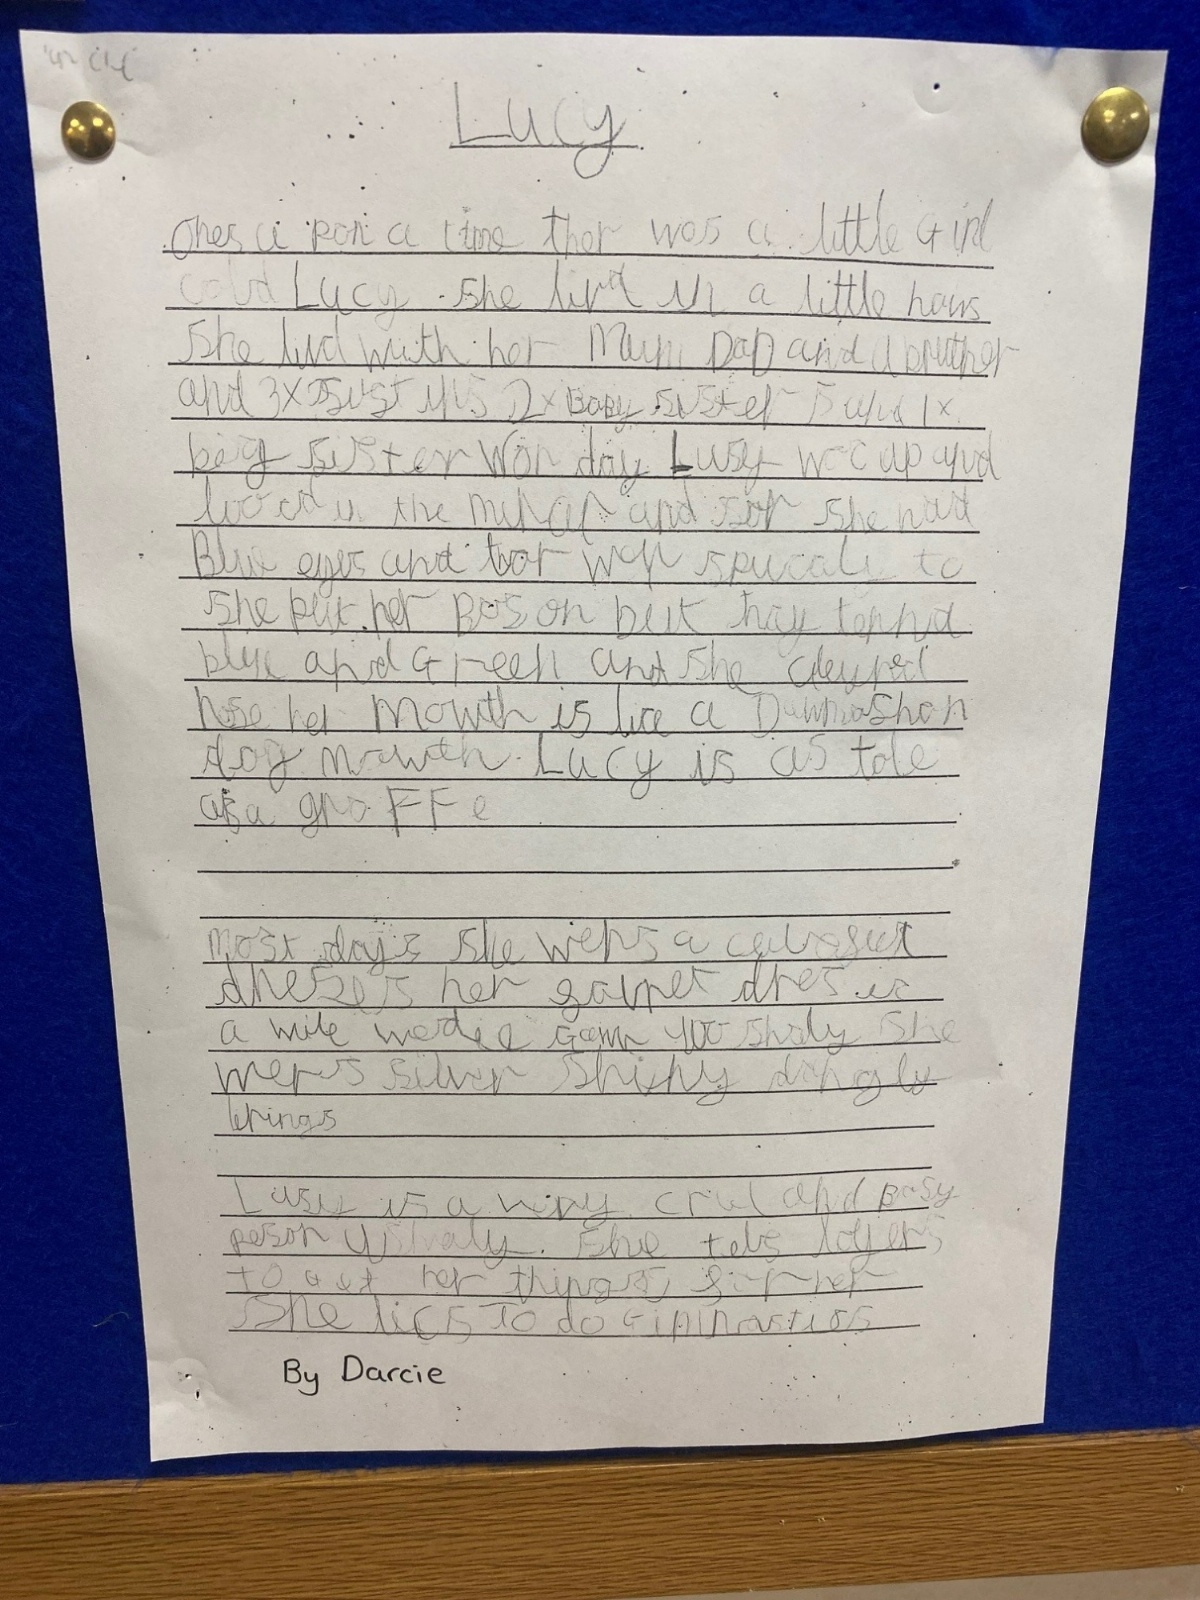 Lucy
Ones a pon a time ther was a little Girl
cold Lucy. She livd in a little hows
She livd with her Mum DaD and bruther
and 3x sisters 2x Baby sisters and 1x
big sister Won day Lusy woc up and
looct in the mirar and sor she had
Blue eyes and
She put her on but thay ternd
blue and Green and she
her mowth is lice a
dog mowth. Lucy is as tole
as a graFFe
Most days she wers a
dress her dres is
a She
wers silver shiny dangly
erings
Lusy is a very crul and Bosy
person Ushaly. She tels
to get her things for her
She lics To do Gimnastics
By Darcie